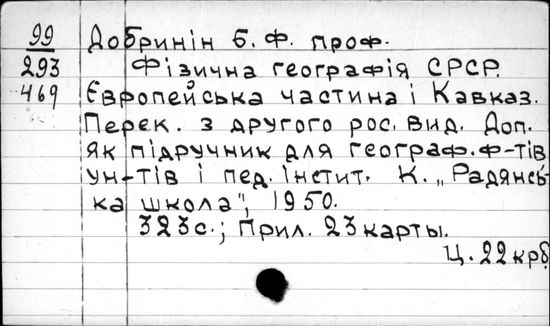 99 Добринін Б. Ф. проф.
293 Фізична географія СРСР.
469 Європейська частина і Кавказ.
Перек. з другого рос. вид. Доп.
як підручник для географ. ф-тів
ун-тів і пед. інстит. К. „Радянсь-
ка школа", 1950.
323с.; Прил. 23 карты.
Ц. 22 крб.